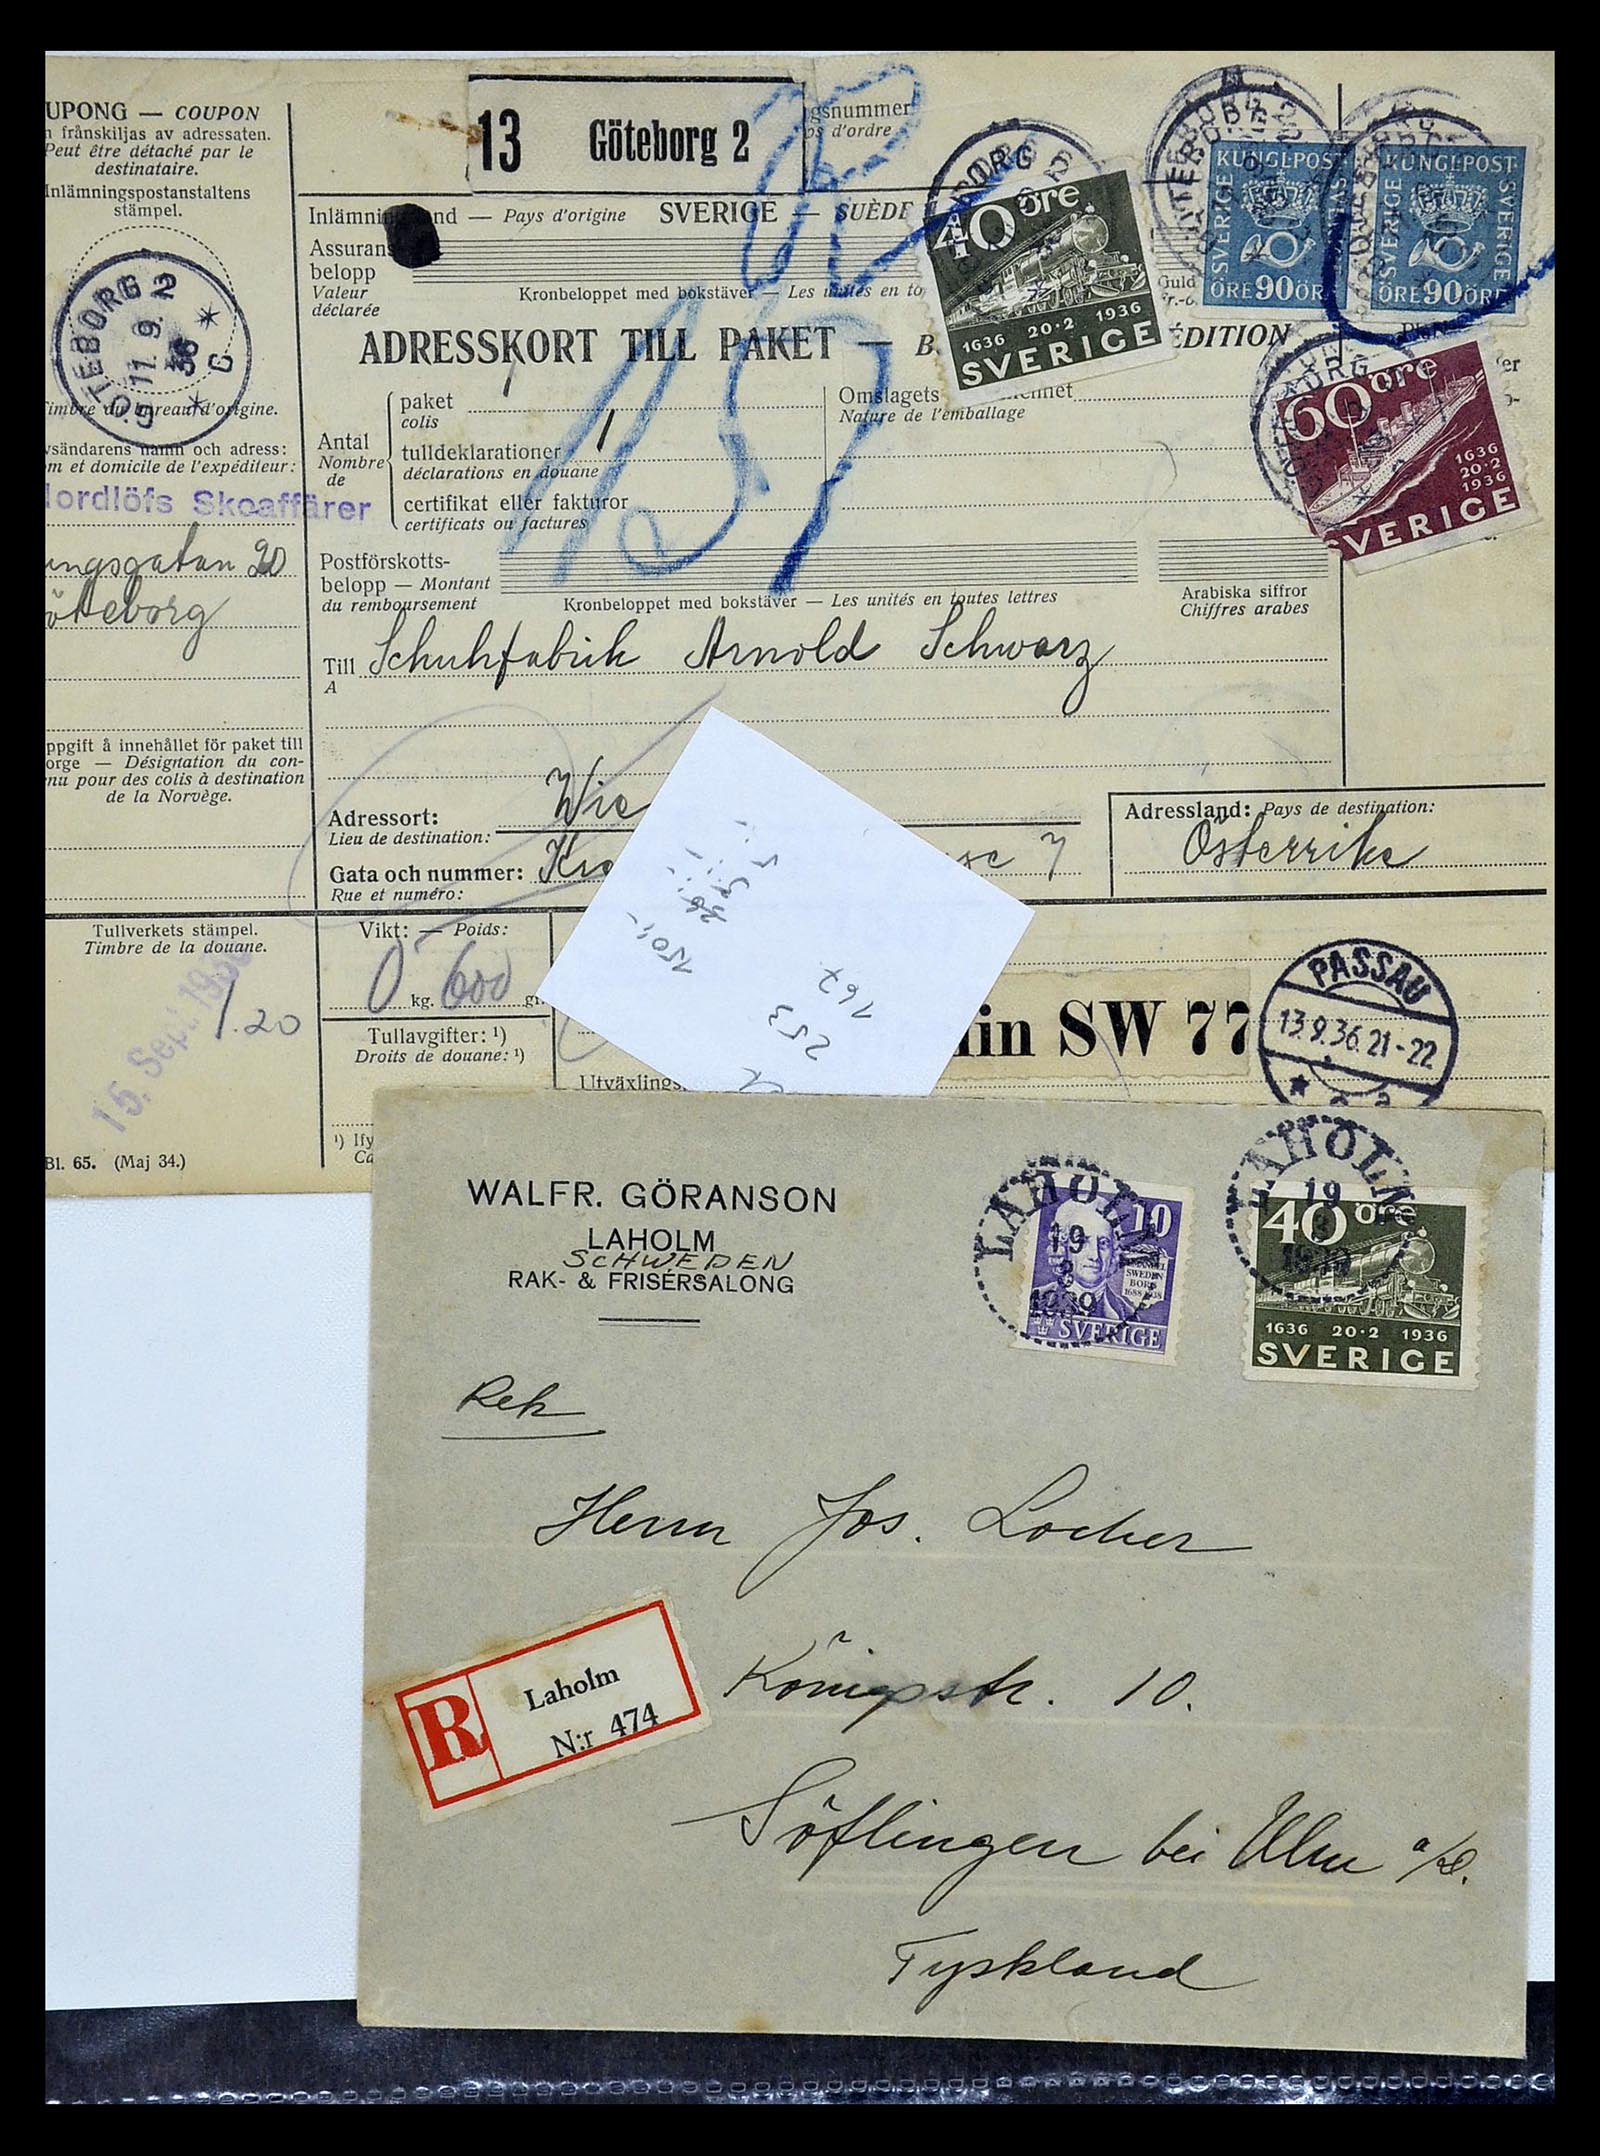 UPONG — COUPON
n frånskiljas av adressaten.
Peut être détaché par le
destinataire.
Inlämningspostanstaltens
stämpel.
GÖTEBORG 2
11. 9. 36
C
Timbre du bureau d'origine.
vsändarens namn och adress:
m et domicile de l'expéditeur:
Nordlöfs Skoaffärer
ungsgatan 20
öteborg
ppgift å innehållet för paket till
orge — Désignation du con-
nu pour des colis à destination
de la Norvège.
Tullverkets stämpel.
Timbre de la douane.
1.20
15. Sept. 1936
Bl. 65. (Maj 34.)
13 Göteborg 2
gsnummer
os d'ordre
Inlämni and — Pays d'origine SVERIGE — SUÈDE
Assurans
belopp
Valeur
déclarée
Kronbeloppet med bokstäver — Les unités en to
ADRESSKORT TILL PAKET — B ÉDITION
Antal
Nombre
de
paket
colis
1
tulldeklarationer
déclarations en douane
1
certifikat eller fakturor
certificats ou factures
Omslagets
Nature de l'emballage
Postförskotts-
belopp — Montant
du remboursement
Kronbeloppet med bokstäver — Les unités en toutes lettres
Arabiska siffror
Chiffres arabes
Till Schuhfabrik Arnold Schwarz
A
Adressort: Wie
Lieu de destination:
Gata och nummer:
Rue et numéro:
sse 7
Adressland: Pays de destination:
Österrike
Vikt: — Poids:
0 kg. 600 gr
Tullavgifter: ¹)
Droits de douane: ¹)
Utväxlings
¹) Ify
Ca
lin SW 77
PASSAU
13.9.36.21-22
40 öre
1636 20·2 1936
SVERIGE
KUNGLPOST
SVERIGE
ÖRE 90 ÖRE
KUNGLPOST
SVERIGE
ÖRE 90 ÖRE
60 öre
1636
20·2
1936
SVERIGE
150,-
253
167
WALFR. GÖRANSON
LAHOLM
SCHWEDEN
RAK- & FRISÉRSALONG
LAHOLM
19
8
1939
10
EMANUEL
SWEDEN
BORG
1688 1938
SVERIGE
LAHOLM
19
8
1939
40 ör
1636 20·2 1936
SVERIGE
Rek
Herrn Jos. Locher
R
Laholm
N:r 474
Königstr. 10.
Söflingen bei Ulm a/D.
Tyskland